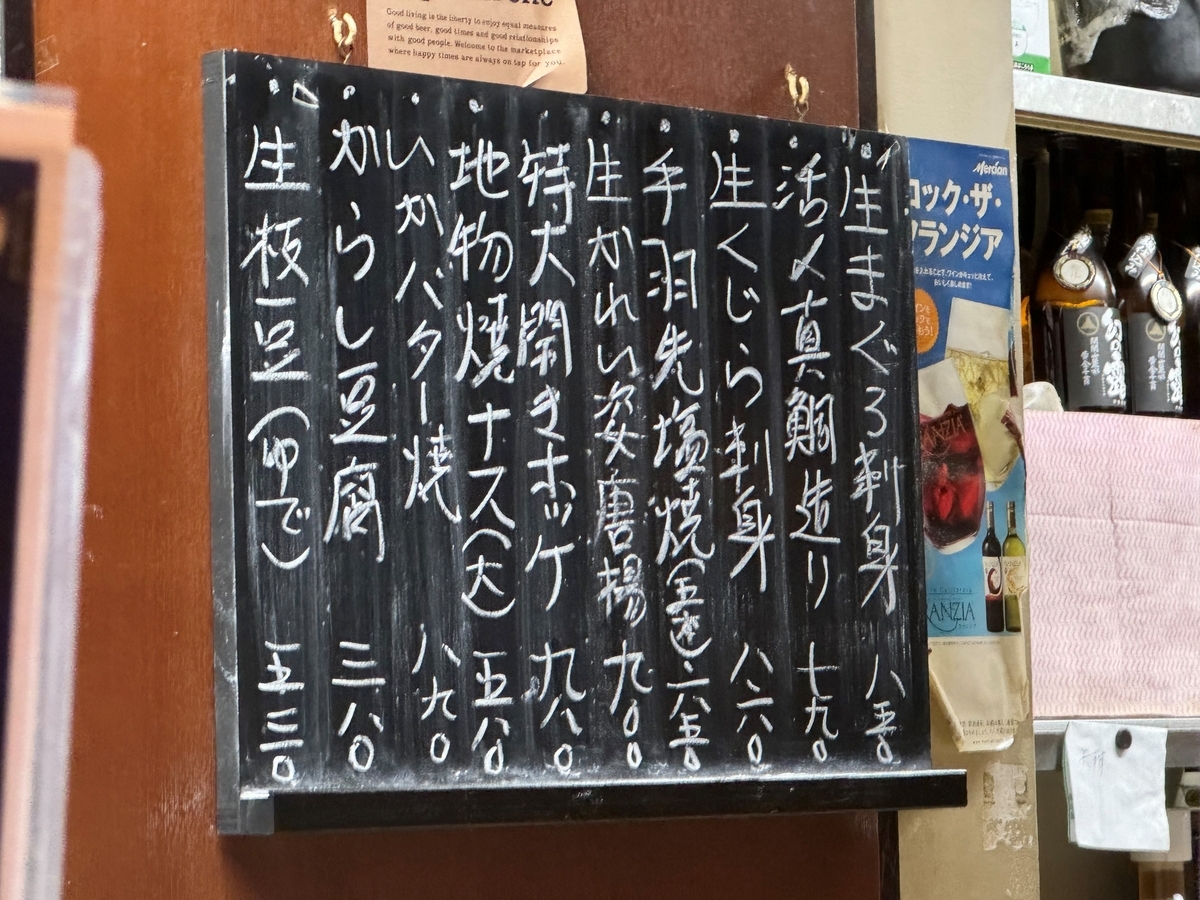 Good living is the liberty to enjoy equal measures
of good beer, good times and good relationships
with good people. Welcome to the marketplace
where happy times are always on tap for you.
生まぐろ刺身 八五0
活〆真鯛造り 七九0
生くじら刺身 八六0
手羽先塩焼(五本)六八五0
生かれい姿唐揚 九00
特大開きホッケ 九八0
地物焼ナス(大) 五八0
いかバター焼 八九0
からし豆腐 三八0
生枝豆(ゆで) 五三0
Mercian
ロック・ザ・
フランジア